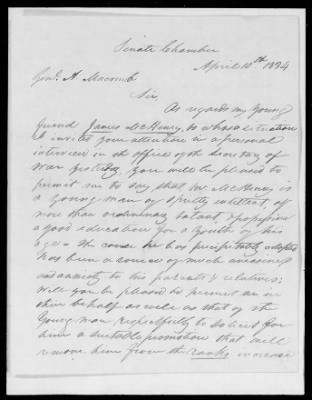 Senate Chamber
April 10th 1834
Genl. A. Macomb
Sir,
As regards my young
friend James McHenry, to whose situation
I invited your attention in a personal
interview in the office of the Secretary of
War yesterday, you will be pleased to
permit me to say that Mr. McHenry is
a young man of pretty intellect, of
more than ordinary talent, & possessing
a good education for a youth of his
age. The course he has precipitately adopted
has been a source of much uneasiness
and anxiety to his parents & relatives;
Will you be pleased to permit me in
their behalf as well as that of the
young man respectfully to solicit for
him a suitable promotion that will
remove him from the ranks